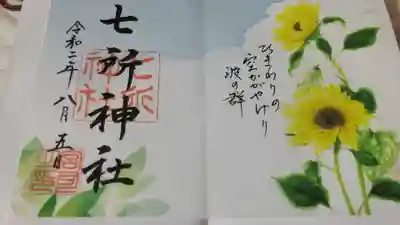 七所神社
令和二年八月五日
ひまわりの
空かがやけり
波の群